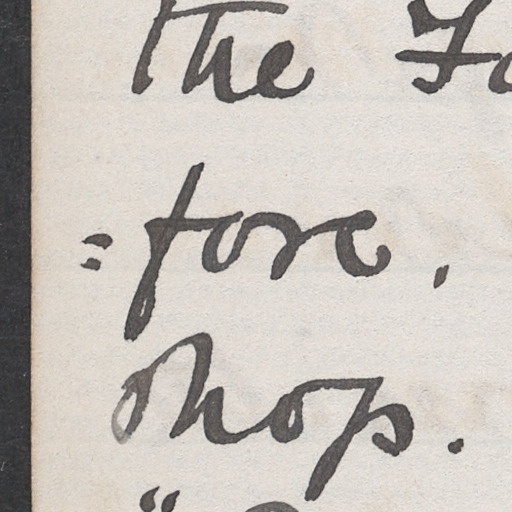 the Fo
=fore,
shop.
"